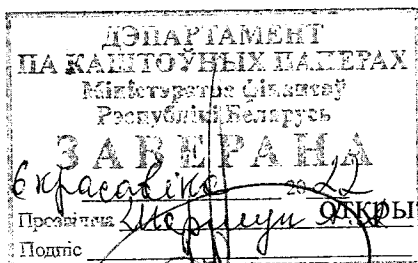 ДЭПАРТАМЕНТ
ПА КАШТОЎНЫХ ПАПЕРАХ
Міністэрства фінансаў
Рэспублікі Беларусь
ЗАВЕРАНА
6 красавіка 2022
Прозвішча ОТКРЫ
Подпіс